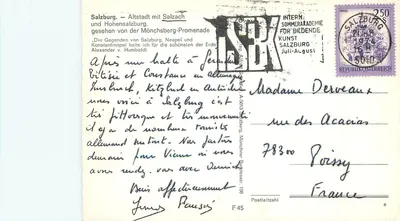 Salzburg. – Altstadt mit Salzach
und Hohensalzburg,
gesehen von der Mönchsberg-Promenade
„Die Gegenden von Salzburg, Neapel und
Konstantinopel halte ich für die schönsten der Erde"
Alexander v. Humboldt
INTERN.
SOMMERAKADEMIE
FÜR BILDENDE
KUNST
SALZBURG
Juli-August
SALZBURG
5010
2.50
REPUBLIK ÖSTERREICH
Après une halte à
Titisee et Constance en Allemagne
Innsbruck, Kitzbuhl en Autriche
nous voici à Salzburg. C'est
très pittoresque et très mouvementé
il y a de nombreux touristes
allemands surtout. Nous partons
demain pour Vienne où nous
avons rendez-vous avec
Bien affectueusement
F 45
Postleitzahl
Madame Derveaux
rue des Acacias
78300 Poissy
France